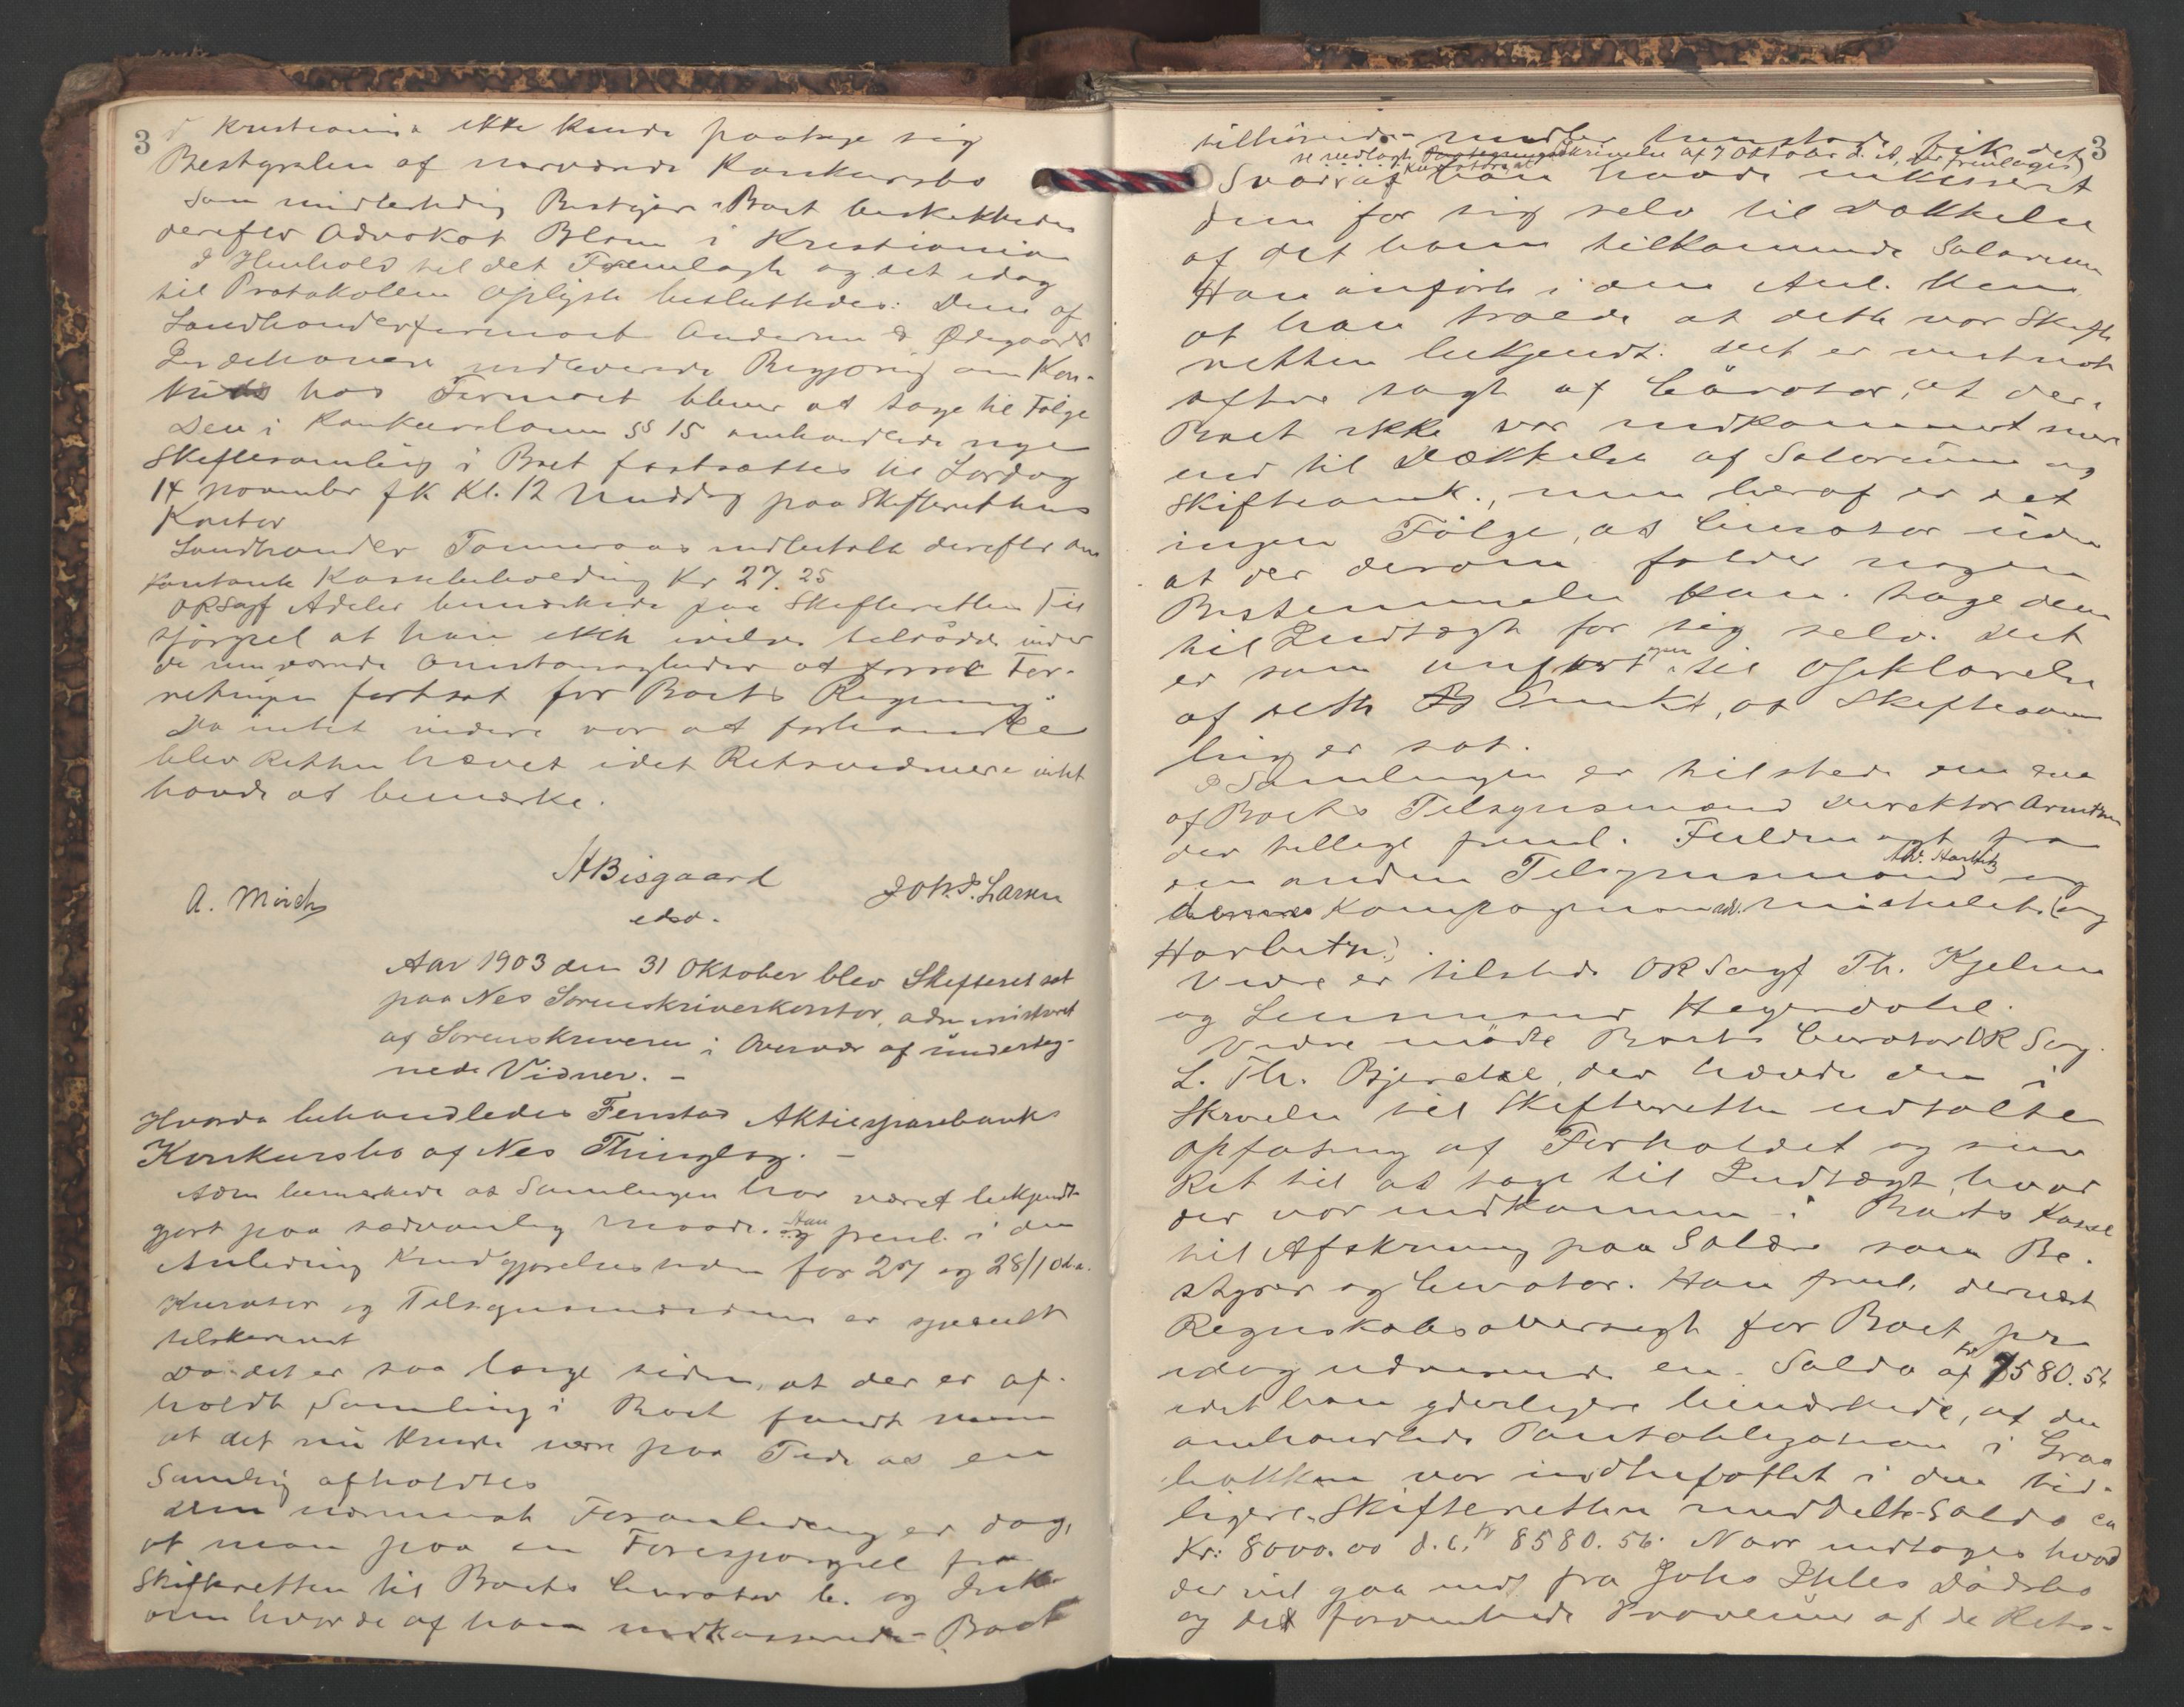 3
i Kristiania ikke kunde paatage sig
Bestyrelsen af nærværende Konkursbo
Som midlertidig Bestyrer i Boet beskikkedes
derefter Advokat Blom i Kristiania
I Henhold til det Fremlagte og det idag
til Protokollen Oplyste besluttedes: Den af
Landhandlerfirmaet Andersen & Ødegaards
indleverede Begjæring om Kon-
kurs hos Firmaet bliver at tage til Følge
Den i Konkursloven §§ 15 omhandlede nye
Skiftesamling i Boet fastsættes til Lørdag
14 november fk Kl. 12 Middag paa Skifterettens
Kontor
Landhandler indbetalte derefter den
kontante Kassebeholdning Kr 27.25
ORSagf Adeler bemærkede paa Skifterettens For
spørgsel at han ikke vilde tilraade under
de nuværende Omstændigheder at For-
retningen fortsat for Boets Regning.
Da intet videre var at forhandle
blev Retten hævet idet Retsvidnerne intet
havde at bemærke.
HBisgaard
A. Mörch
Joh. P. Larsen
edsv.
Aar 1903 den 31 Oktober blev Skifteret sat
paa Nes Sorenskriverkontor, administreret
af Sorenskriveren i Overvær af underteg-
nede Vidner. -
Hvorda behandledes Fenstad Aktiesparebanks
Konkursbo af Nes Thinglag. -
Adm bemærkede at Samlingen har været bekjendt-
gjort paa sædvanlig Maade. og Han freml. i den
Anledning Kundgjørelsestidende for 27 og 28/10 d.a.
Kurator og Tilsynsmændene er specielt
tilskrevet
Da det er saa længe siden, at der er af-
holdt Samling i Boet fandt man
at det nu kunde være paa Tide at en
Samling afholdtes
Den nærmeste Foranledning er dog,
at man paa en Forespørgsel fra
Skifteretten til Boets Curator
om hvor de af ham indkasserede Boet
3
tilhørende midler henstode fik det
se vedlagte skrivelse af 7 Oktober d. A. der fremlagdes
Svar at han havde inkasseret
dem for sig selv til Dækkelse
af det ham tilkommende Salarium
Han anførte i den Anl.
at han troede at dette var Skifte
retten bekjendt. Det er vistnok
oftere sagt af Curator, at der i
Boet ikke var indkommet mere
end til Dækkelse af Salarium og
Skifteomk., men heraf er det
ingen Følge, at Curator uden
at der derom falder nogen
Bestemmelse kan tage dem
til Indtægt for sig selv. Det
er som anført til Opklarelse
af dette Punkt, at Skiftesam
ling er sat.
I Samlingen er tilstede en
af Boets Tilsynsmænd Direktør Arntzen
der tillige freml. Fuldmagt fra
en anden Tilsynsmand Adv. Harbitz og
dennes Kompagnon adv. Michelet (og
Harbitz).
Vidre er tilstede ORSagf Th. Kjelsen
og Lensmand Hegerdahl.
Vidre mødte Boets Curator OR Sag.
L. Th. Bjerdal, der hævdede den i
Skrivelse til Skifteretten udtalte
Opfatning af Forholdet og sin
Ret til at tage til Indtægt, hvad
der var indkommen i Boets Kasse
til Afskrivning paa Salær som Be-
styrer og Curator. Han freml. dernæst
Regnskabsoversigt for Boet pr
idag udvisende en Saldo af kr 7580.56
idet han yderligere bemærkede, at den
omhandlede Pantobligation i Graa
bakken var indbefattet i den tid-
ligere Skifteretten meddelte Saldo ca
Kr: 8000.00 d.e. kr 8580.56. Naar undtages hvad
der vil gaa ind fra Johs Ihles Dødsbo
og det forventede Provenue af de Rets-